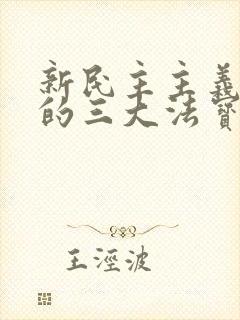 新民主主義
的三大法寶
王涇波